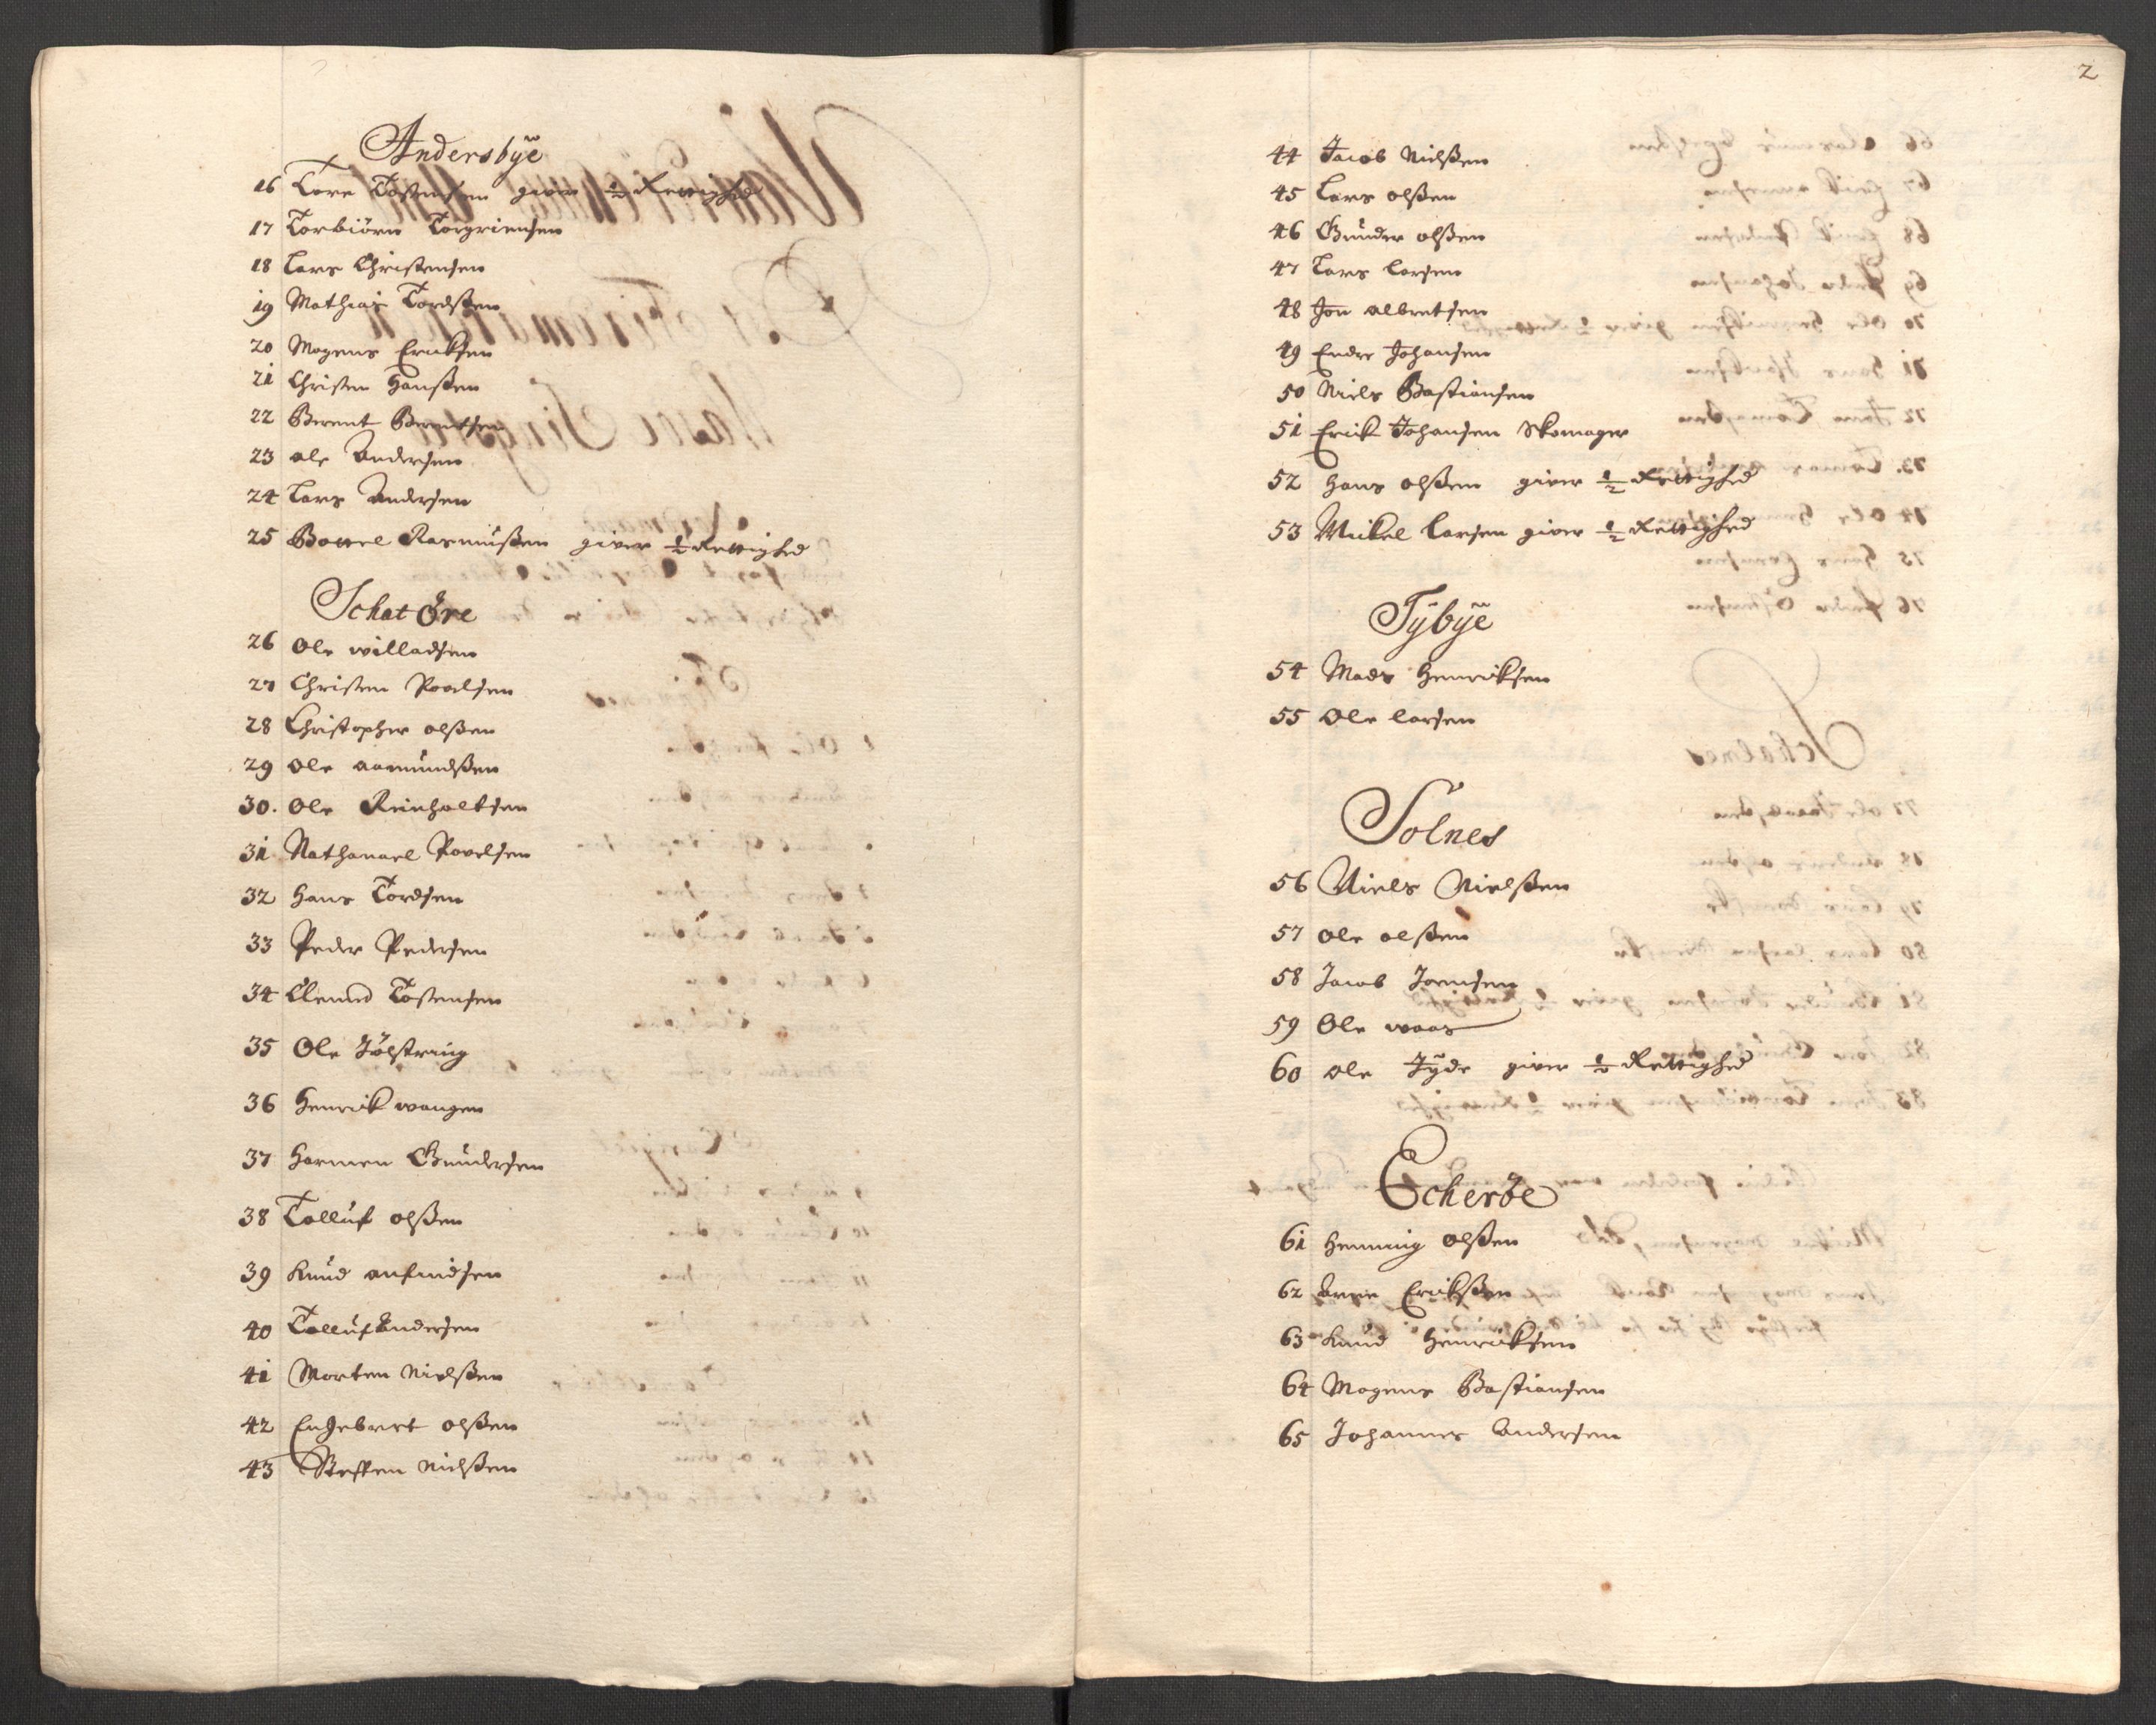 Andersbÿe
16 Tore Tostensen giver ½ Rettighed
17 Torbiörn Torgriensen
18 Lars Christensen
19 Mathias Tordßen
20 Mogens Ericksen
21 Christen Hanßen
22 Berent Berentsen
23 ole Andersen
24 Lars Andersen
25 Bottel Rasmußen giver ½ Rettighed
Schatöre
26 Ole willadsen
27 Christen Povelsen
28 Christopher olßen
29 Ole aamundßen
30. Ole Reinholtsen
31 Nathanael Povelsen
32 Hans Tordsen
33 Peder Pedersen
34 Clemed Tostensen
35 Ole Jölstring
36 Henrick wangen
37 Harmen Gundersen
38 Tolluf olßen
39 Knud anfindsen
40 Tolluf Andersen
41 Morten Nielßen
42 Engebret olßen
43 Steffen Nielßen
2
44 Jacob Nielßen
45 Lars olßen
46 Gunder olßen
47 Lars larsen
48 Jon albretsen
49 Endre Johansen
50 Niels Bastiansen
51 Erick Johansen Skomager
52 Hans olßen giver ½ Rettighed
53 Mickel Larsen giver ½ Rettighed
Tÿbÿe
54 Mads Henricksen
55 Ole larsen
Solnes
56 Niels Nielßen
57 Ole olßen
58 Jacob Joensen
59 Ole waas
60 ole Jÿde giver ½ Rettighed
Echeröe
61 Henning olßen
62 Arne Erickßen
63 Knud Henricksen
64 Mogens Bastiansen
65 Johannes Andersen